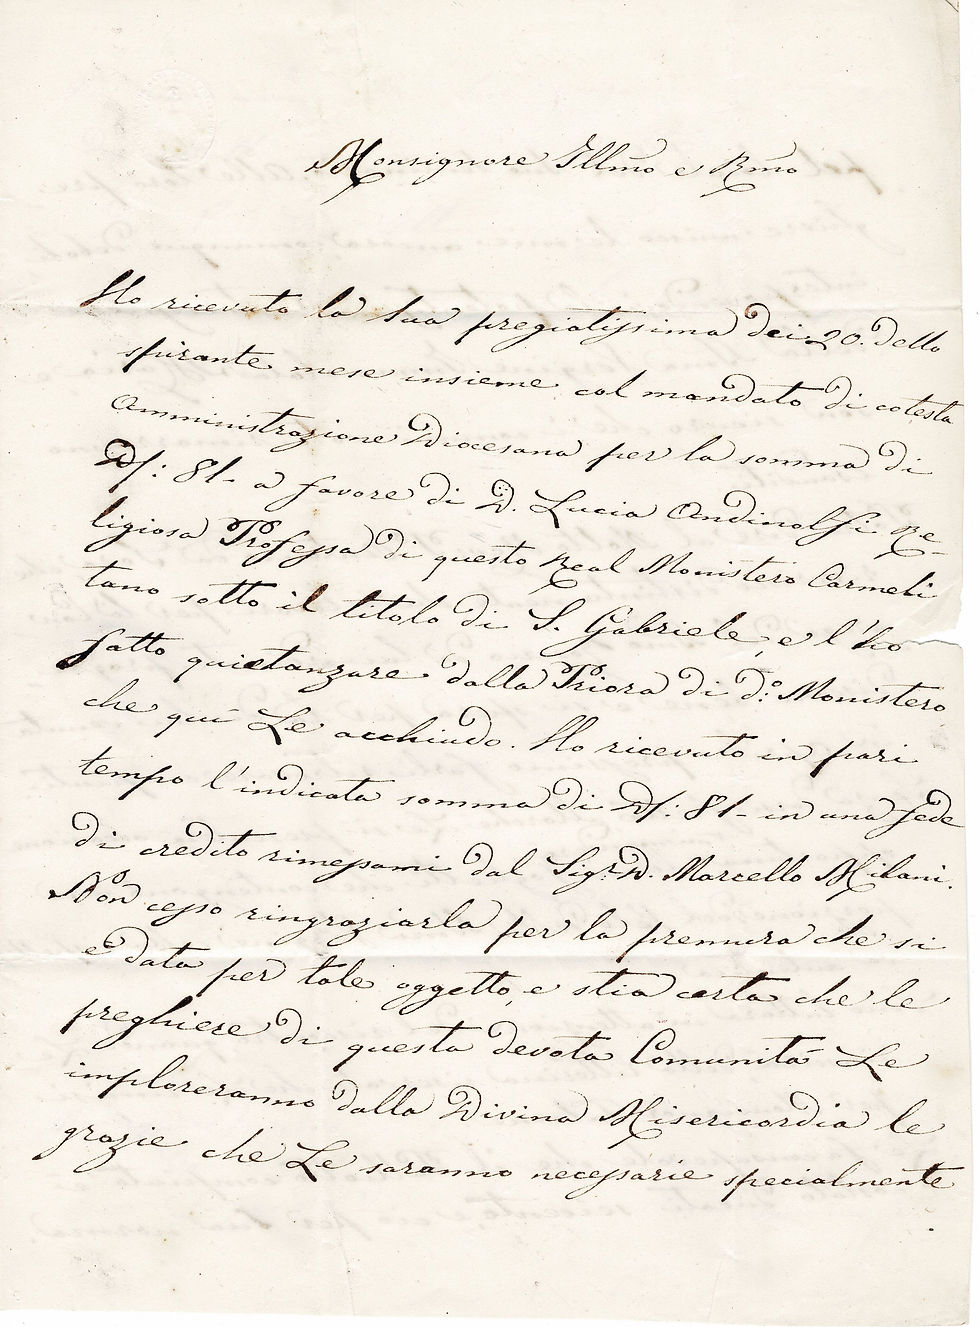 Monsignore Illmo e Rmo
Ho ricevuto la sua pregiatissima dei 20. dello
spirante mese insieme col mandato di cotesta
Amministrazione Diocesana per la somma di
D/: 81- a favore di D. Lucia Andinolfi Re-
ligiosa Professa di questo Real Monistero Carmeli
tano sotto il titolo di S. Gabriele, e l'ho
fatto quietanzare dalla Priora di do: Monistero,
che quì Le acchiudo. Ho ricevuto in pari
tempo l'indicata somma di D/: 81- in una fede
di credito rimessami dal Sigr. D. Marcello Milani.
Non cesso ringraziarla per la premura che si
è data per tale oggetto, e stia certa che le
preghiere di questa devota Comunità Le
imploreranno dalla Divina Misericordia le
grazie che Le saranno necessarie specialmente